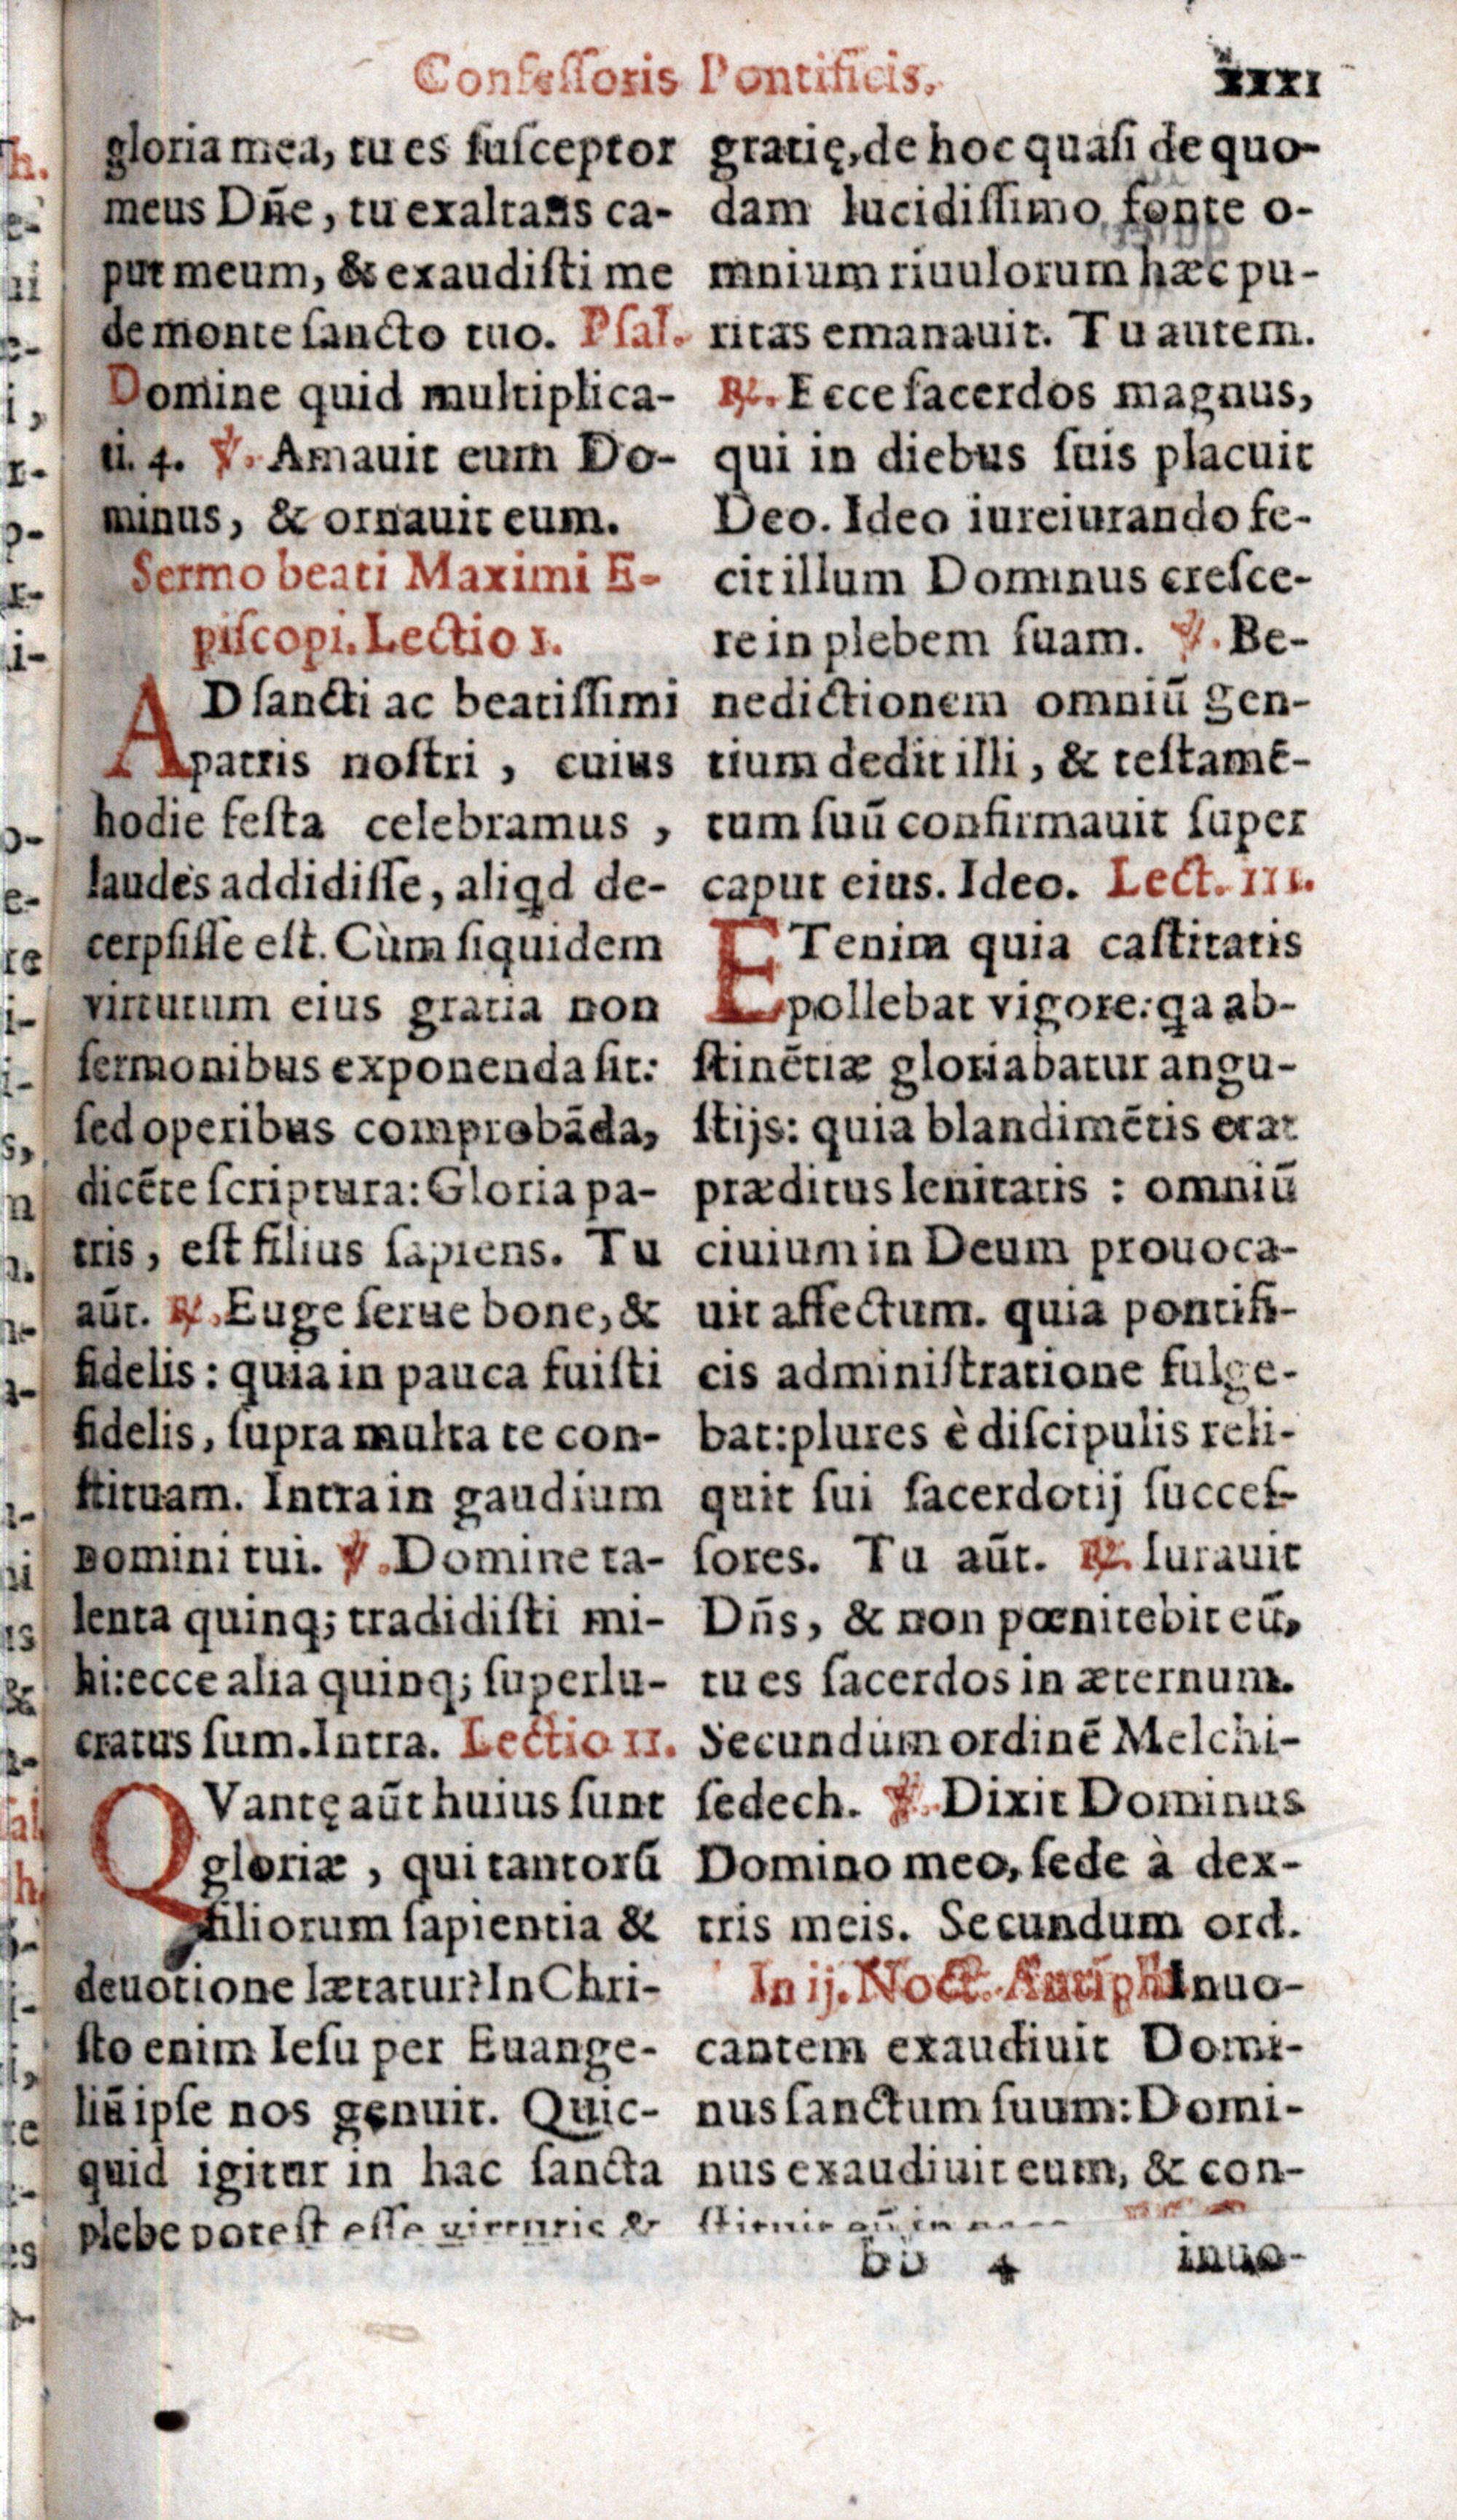 Confeſſoris Pontificis.
xxxi
gloria mea, tu es ſuſceptor
meus Dñe, tu exaltans ca-
put meum, & exaudiſti me
de monte ſancto tuo. Pſal.
Domine quid multiplica-
ti. 4. ℣. Amauit eum Do-
minus, & ornauit eum.
Sermo beati Maximi E-
piſcopi. Lectio 1.
AD ſancti ac beatiſſimi
patris noſtri, cuius
hodie feſta celebramus,
laudes addidiſſe, aliqd de-
cerpſiſſe eſt. Cùm ſiquidem
virtutum eius gratia non
ſermonibus exponenda ſit:
ſed operibus comprobāda,
dicēte ſcriptura: Gloria pa-
tris, eſt filius ſapiens. Tu
aūt. ℟. Euge ſerue bone, &
fidelis: quia in pauca fuiſti
fidelis, ſupra multa te con-
ſtituam. Intra in gaudium
Domini tui. ℣. Domine ta-
lenta quinq; tradidiſti mi-
hi: ecce alia quinq; ſuperlu-
cratus ſum. Intra. Lectio 11.
QVantę aūt huius ſunt
gloriæ, qui tantorū
filiorum ſapientia &
deuotione lætatur? In Chri-
ſto enim Ieſu per Euange-
liū ipſe nos genuit. Quic-
quid igitur in hac ſancta
plebe poteſt eſſe virtutis &
gratię, de hoc quaſi de quo-
dam lucidiſſimo fonte o-
mnium riuulorum hæc pu-
ritas emanauit. Tu autem.
℟. Ecce ſacerdos magnus,
qui in diebus ſuis placuit
Deo. Ideo iureiurando fe-
cit illum Dominus creſce-
re in plebem ſuam. ℣. Be-
nedictionem omniū gen-
tium dedit illi, & teſtamē-
tum ſuū confirmauit ſuper
caput eius. Ideo. Lect. 111.
ETenim quia caſtitatis
pollebat vigore: qa ab-
ſtinētiæ gloriabatur angu-
ſtijs: quia blandimētis erat
præditus lenitatis: omniū
ciuium in Deum prouoca-
uit affectum. quia pontifi-
cis adminiſtratione fulge-
bat: plures è diſcipulis reli-
quit ſui ſacerdotij ſucceſ-
ſores. Tu aūt. ℟. Iurauit
Dñs, & non pœnitebit eū,
tu es ſacerdos in æternum.
Secundùm ordinē Melchi-
ſedech. ℣. Dixit Dominus
Domino meo, ſede à dex-
tris meis. Secundum ord.
In ij. Noct. Antiph. Inuo-
cantem exaudiuit Domi-
nus ſanctum ſuum: Domi-
nus exaudiuit eum, & con-
ſtituit eū in
bb 4 inuo-